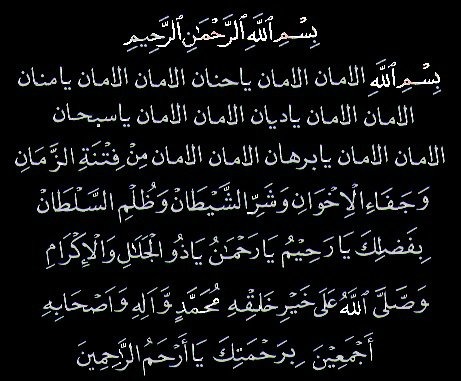 بِسْمِ ٱللَّهِ ٱلرَّحْمَٰنِ ٱلرَّحِيمِ
بِسْمِ ٱللَّهِ الامان الامان ياحنان الامان الامان يامنان
الامان الامان ياديان الامان الامان ياسبحان
الامان الامان يابرهان الامان الامان مِنْ فِتْنَةِ الزَّمَانِ
وَجَفَاءِ الْاِخْوَانِ وَشَرِّ الشَّيْطَانْ وَظُلْمِ السَّلْطَانْ
بِفَضْلِكَ يَا رَحِيْمُ يَا رَحْمٰنُ يَاذُو الْجَلَالِ وَالْاِكْرَامِ
وَصَلَّىَ اللَّهُ عَلىَ خَيْرِ خَلْقِهِ مُحَمَّدٍ وَّآلِهِ وَاَصْحَابِهِ
أَجْمَعِيْنَ بِرَحْمَتِكَ يَا أَرْحَمُ الرَّاحِمِيْنَ